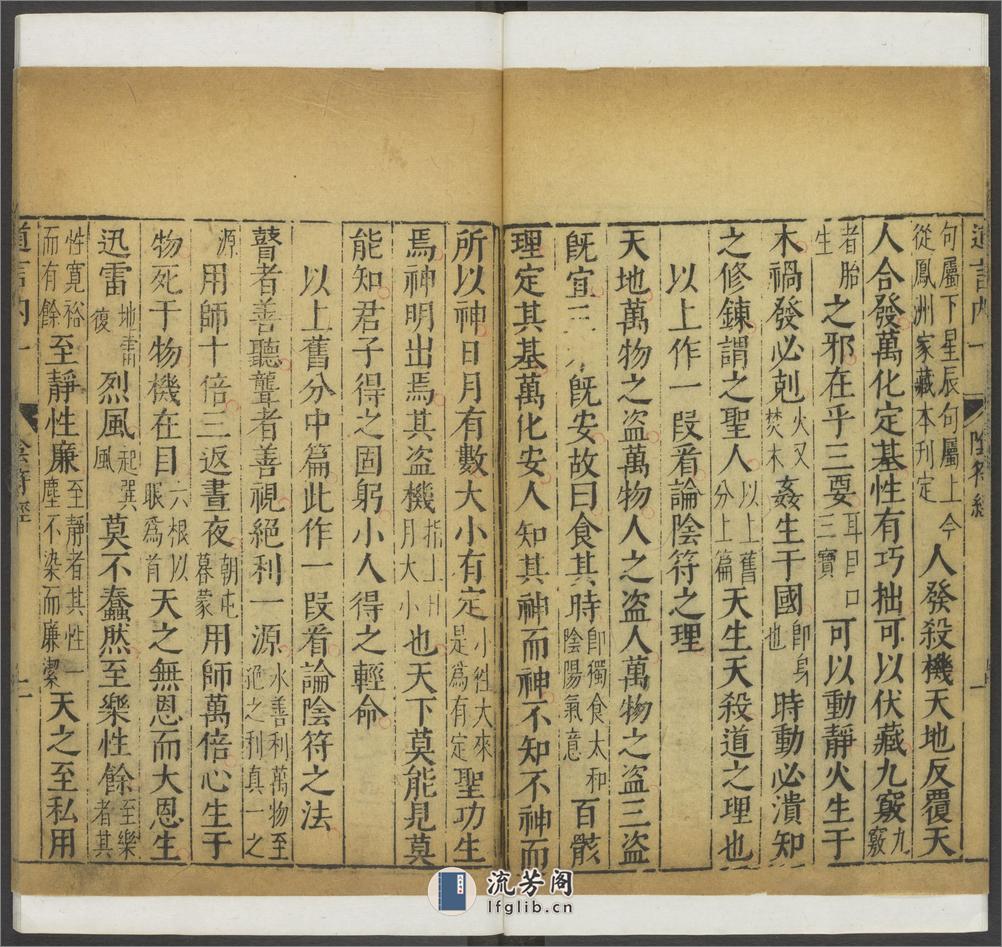 句屬下星辰句屬上今從鳳洲家藏本刊定人發殺機天地反覆天
人合發萬化定基性有巧拙可以伏藏九竅九竅
者胎生之邪在乎三要耳目口三寶可以動靜火生于
木禍發必剋火又焚木姦生于國卽身也時動必潰知
之修鍊謂之聖人以上舊分上篇天生天殺道之理也
以上作一段看論陰符之理
天地萬物之盜萬物人之盜人萬物之盜三盜
旣宜三 旣安故曰食其時卽獨食太和陰陽氣意百骸
理定其基萬化安人知其神而神不知不神而
所以神日月有數大小有定小徃大來是爲有定聖功生
焉神明出焉其盜機指上日月大小也天下莫能見莫
能知君子得之固躬小人得之輕命
以上舊分中篇此作一段看論陰符之法
瞽者善聽聾者善視絕利一源水善利萬物至絕之利真一之
源用師十倍三返晝夜朝屯暮蒙用師萬倍心生于
物死于物機在目六根以眼爲首天之無恩而大恩生
迅雷地雷復烈風起巽風莫不蠢然至樂性餘至樂者其
性寬裕而有餘至靜性廉至靜者其性一塵不染而廉潔天之至私用
道言內一
陰符經
一
道言內一
陰符經
流芳阁
lfglib.cn